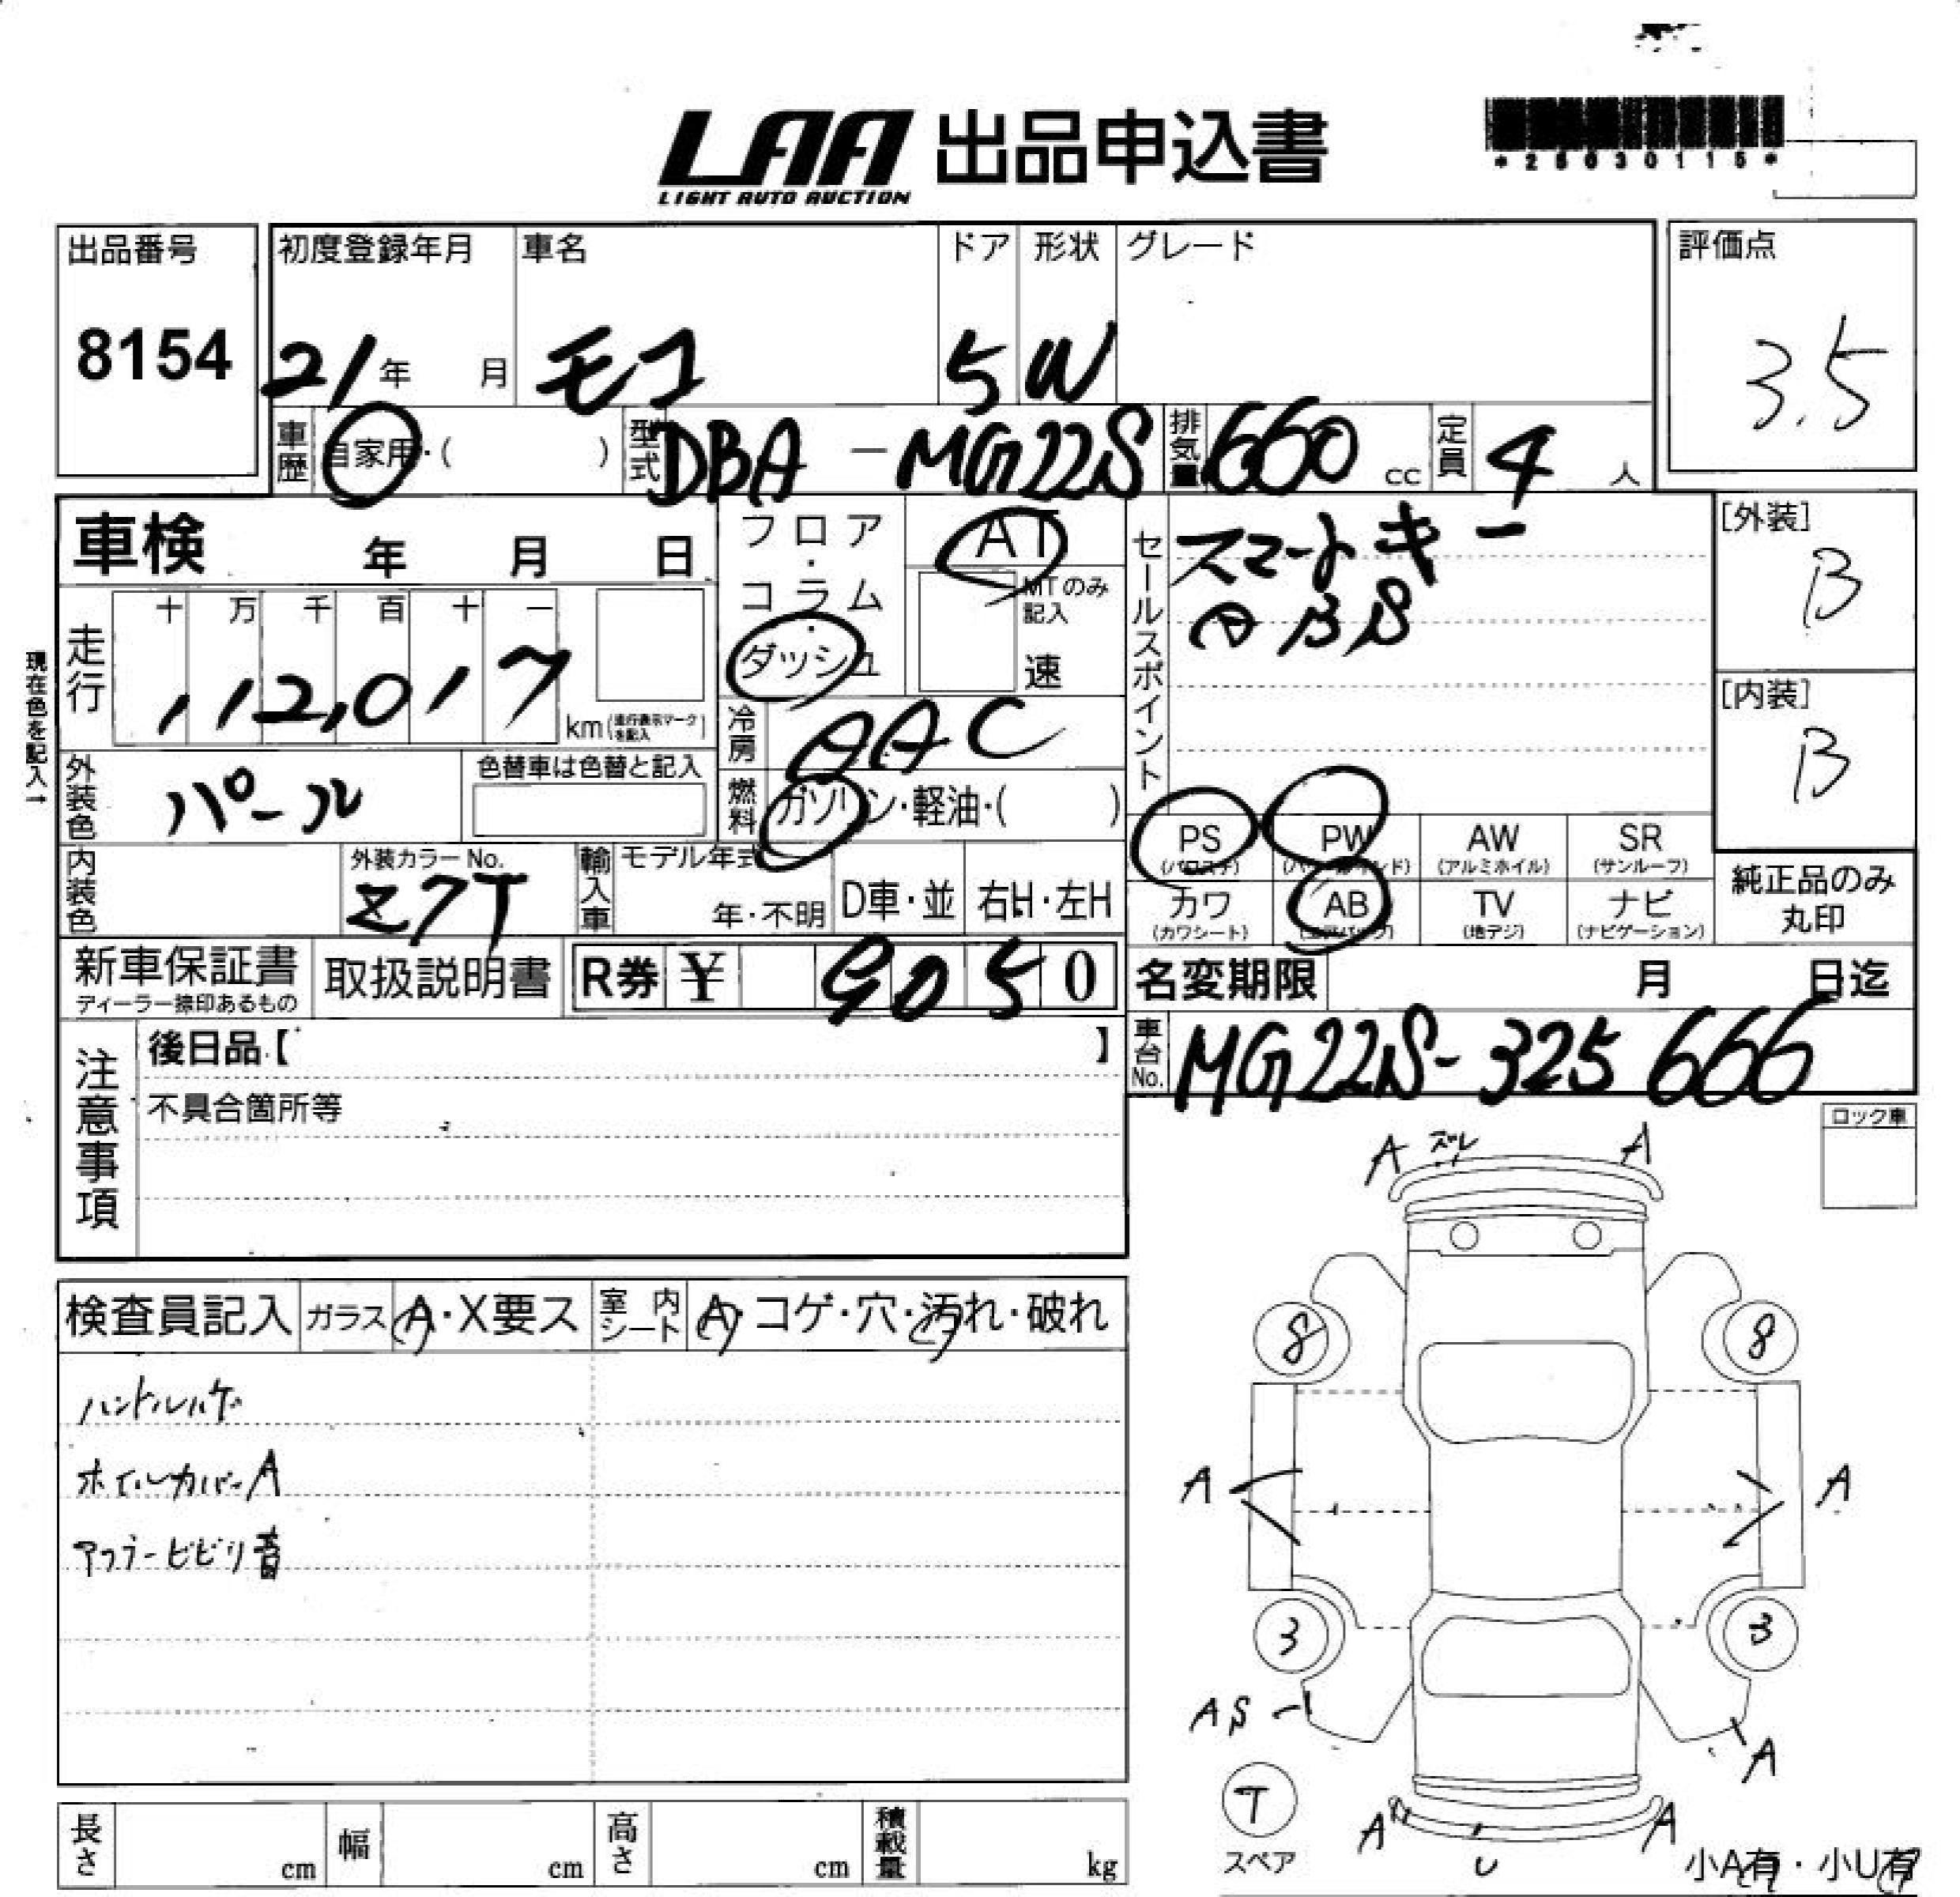 LAA 出品申込書
LIGHT AUTO AUCTION
*25030115*
出品番号
8154
初度登録年月
21年 月
車名
モコ
ドア
5
形状
W
グレード
評価点
3.5
車歴 自家用・( )
型式 DBA-MG22S
排気量 660 cc
定員 4 人
車検 年 月 日
フロア・コラム・ダッシュ
AT
MTのみ記入
速
セールスポイント
スマートキー
ABS
[外装]
B
[内装]
B
現在色を記入→
走行
十 万 千 百 十 一
112,017
km(走行表示マークを記入)
冷房 AAC
外装色 パール
色替車は色替と記入
燃料 ガソリン・軽油・( )
PS (パワステ)
PW
AW (アルミホイル)
SR (サンルーフ)
内装色
外装カラーNo.
Z7T
輸入車
モデル年式
年・不明
D車・並
右H・左H
カワ (カワシート)
AB (エアバック)
TV (地デジ)
ナビ (ナビゲーション)
純正品のみ
丸印
新車保証書
ディーラー捺印あるもの
取扱説明書
R券 ¥ 9050
名変期限 月 日迄
車台No. MG22S-325666
注意事項
後日品【 】
不具合箇所等
ロック車
A ズレ A
検査員記入
ガラス A・X要ス
室内シート A・コゲ・穴・汚れ・破れ
ハンドルハゲ
ホイルカバーA
マフラービビリ音
8 8
A A
3 3
AS A
T
スペア
A U A
小A有・小U有
長さ cm
幅 cm
高さ cm
積載量 kg